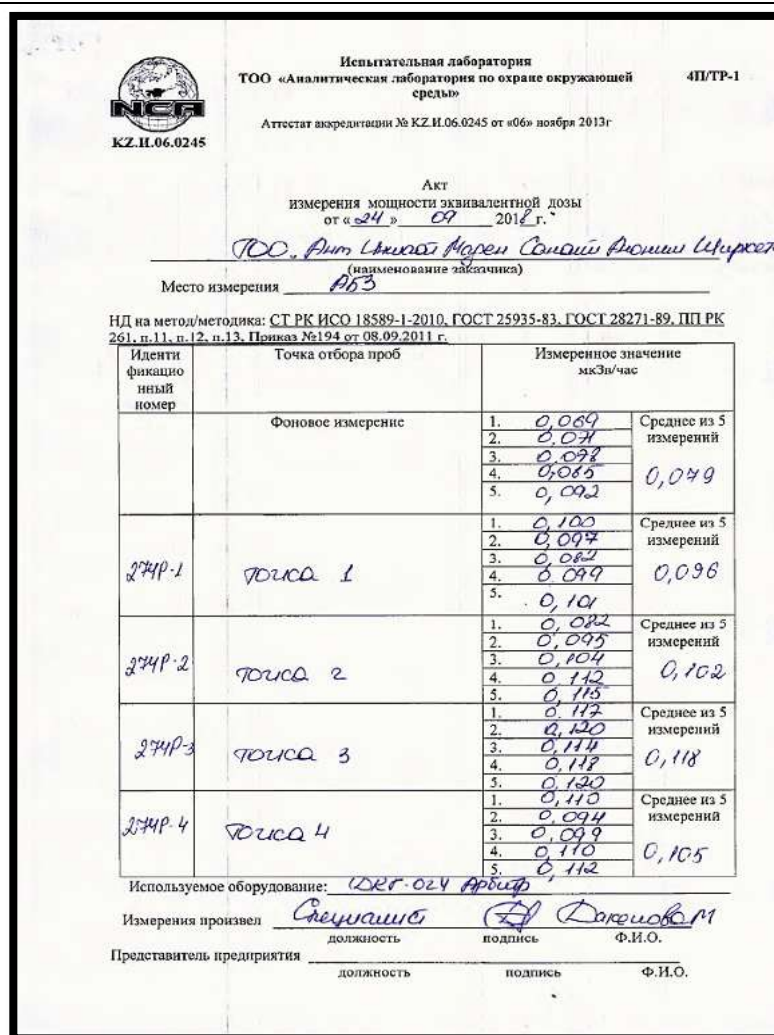 Испытательная лаборатория
ТОО «Аналитическая лаборатория по охране окружающей среды»
4П/ТР-1
NCA
KZ.И.06.0245
Аттестат аккредитации № KZ.И.06.0245 от «06» ноября 2013г
Акт
измерения мощности эквивалентной дозы
от « 24 » 09 2018 г.
ТОО
(наименование заказчика)
Место измерения АБЗ
НД на метод/методика: СТ РК ИСО 18589-1-2010, ГОСТ 25935-83, ГОСТ 28271-89, ПП РК
261, п.11, п.12, п.13, Приказ №194 от 08.09.2011 г.
Иденти фикацио нный номер
Точка отбора проб
Измеренное значение мкЗв/час
Фоновое измерение
1. 0,069
2. 0,071
3. 0,098
4. 0,065
5. 0,092
Среднее из 5 измерений
0,079
274Р-1
точка 1
1. 0,100
2. 0,097
3. 0,082
4. 0.099
5. 0,101
Среднее из 5 измерений
0,096
274Р-2
точка 2
1. 0,082
2. 0,095
3. 0,104
4. 0,112
5. 0,115
Среднее из 5 измерений
0,102
274Р-3
точка 3
1. 0.117
2. 0,120
3. 0,114
4. 0,118
5. 0,120
Среднее из 5 измерений
0,118
274Р-4
точка 4
1. 0,110
2. 0,094
3. 0,099
4. 0,110
5. 0,112
Среднее из 5 измерений
0,105
Используемое оборудование: ДКГ-02У Арбитр
Измерения произвел Специалист
должность подпись Ф.И.О.
Представитель предприятия
должность подпись Ф.И.О.